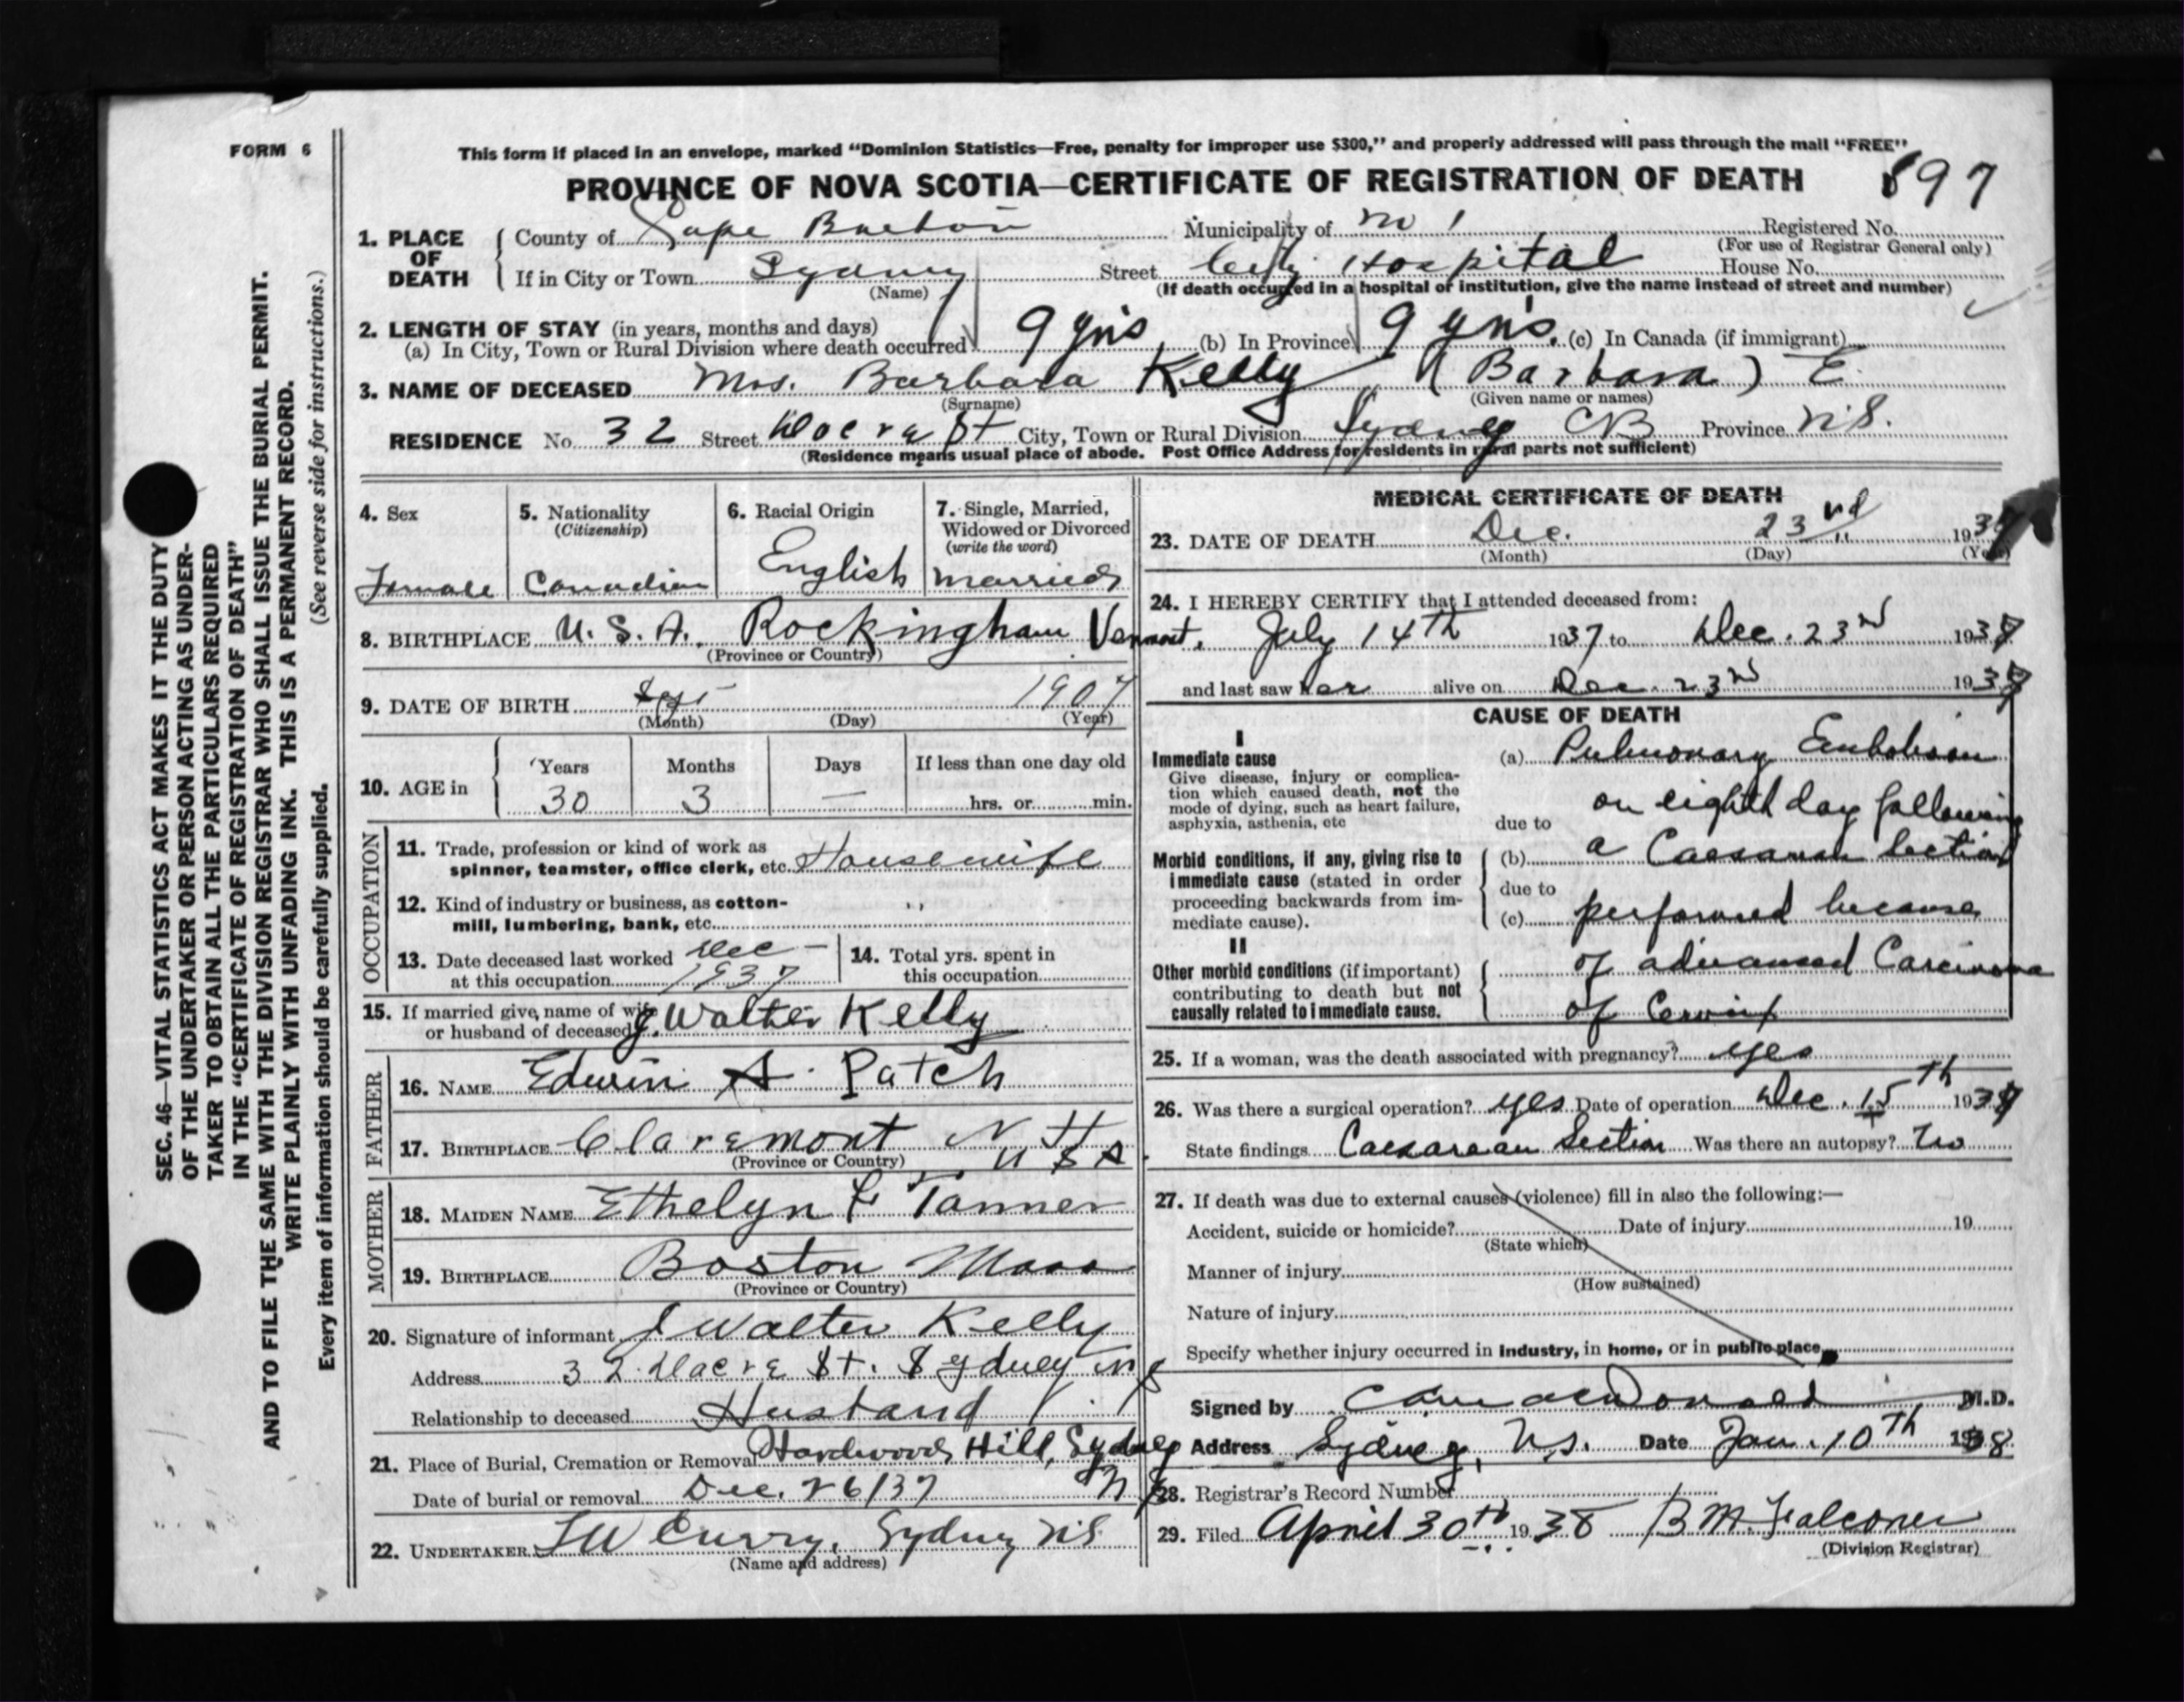 FORM 6
This form if placed in an envelope, marked “Dominion Statistics—Free, penalty for improper use $300,” and properly addressed will pass through the mail “FREE”
PROVINCE OF NOVA SCOTIA—CERTIFICATE OF REGISTRATION OF DEATH 897
1. PLACE OF DEATH { County of Cape Breton Municipality of Registered No.
(For use of Registrar General only)
If in City or Town Sydney Street City Hospital House No.
(Name) (If death occurred in a hospital or institution, give the name instead of street and number)
2. LENGTH OF STAY (in years, months and days)
(a) In City, Town or Rural Division where death occurred 9 yrs (b) In Province 9 yrs. (c) In Canada (if immigrant)
3. NAME OF DECEASED Mrs. Barbara Kelly (Barbara) E.
(Surname) (Given name or names)
RESIDENCE No. 32 Street St City, Town or Rural Division Sydney CB Province N.S.
(Residence means usual place of abode. Post Office Address for residents in rural parts not sufficient)
4. Sex
Female
5. Nationality
(Citizenship)
Canadian
6. Racial Origin
English
7. Single, Married,
Widowed or Divorced
(write the word)
married
8. BIRTHPLACE U. S. A. Rockingham Vermont.
(Province or Country)
9. DATE OF BIRTH Sept 1907
(Month) (Day) (Year)
10. AGE in { Years Months Days If less than one day old
30 3 — hrs. or min.
OCCUPATION
11. Trade, profession or kind of work as
spinner, teamster, office clerk, etc. Housewife
12. Kind of industry or business, as cotton-
mill, lumbering, bank, etc. ,,
13. Date deceased last worked Dec —
at this occupation 1937
14. Total yrs. spent in
this occupation
15. If married give name of wife
or husband of deceased J. Walter Kelly
FATHER
16. NAME Edwin A. Patch
17. BIRTHPLACE Claremont N H
(Province or Country) U S A.
MOTHER
18. MAIDEN NAME Ethelyn F Tanner
19. BIRTHPLACE Boston Mass
(Province or Country)
20. Signature of informant J Walter Kelly
Address 32 St. Sydney N S
Relationship to deceased Husband
21. Place of Burial, Cremation or Removal Hardwood Hill, Sydney
Date of burial or removal Dec. 26/37 N S
22. UNDERTAKER Curry, Sydney NS
(Name and address)
MEDICAL CERTIFICATE OF DEATH
23. DATE OF DEATH Dec. 23rd 1937
(Month) (Day) (Year)
24. I HEREBY CERTIFY that I attended deceased from:
July 14th 1937 to Dec. 23rd 1937
and last saw her alive on Dec. 23rd 1937
CAUSE OF DEATH
I
Immediate cause
Give disease, injury or complica-
tion which caused death, not the
mode of dying, such as heart failure,
asphyxia, asthenia, etc
(a) Pulmonary Embolism
due to on eighth day following
Morbid conditions, if any, giving rise to
immediate cause (stated in order
proceeding backwards from im-
mediate cause).
(b) a Caesarean Section
due to
(c) performed because
II
Other morbid conditions (if important)
contributing to death but not
causally related to immediate cause.
of advanced Carcinoma
of Cervix
25. If a woman, was the death associated with pregnancy? yes
26. Was there a surgical operation? yes Date of operation Dec. 15th 1937
State findings Caesarean Section Was there an autopsy? No
27. If death was due to external causes (violence) fill in also the following:—
Accident, suicide or homicide? Date of injury 19
(State which)
Manner of injury
(How sustained)
Nature of injury
Specify whether injury occurred in industry, in home, or in public place
Signed by MacDonald M.D.
Address Sydney, N.S. Date Jan. 10th 1938
28. Registrar’s Record Number
29. Filed April 30th 1938 B M. Falconer
(Division Registrar)
SEC. 46—VITAL STATISTICS ACT MAKES IT THE DUTY
OF THE UNDERTAKER OR PERSON ACTING AS UNDER-
TAKER TO OBTAIN ALL THE PARTICULARS REQUIRED
IN THE “CERTIFICATE OF REGISTRATION OF DEATH”
AND TO FILE THE SAME WITH THE DIVISION REGISTRAR WHO SHALL ISSUE THE BURIAL PERMIT.
WRITE PLAINLY WITH UNFADING INK. THIS IS A PERMANENT RECORD.
(See reverse side for instructions.)
Every item of information should be carefully supplied.